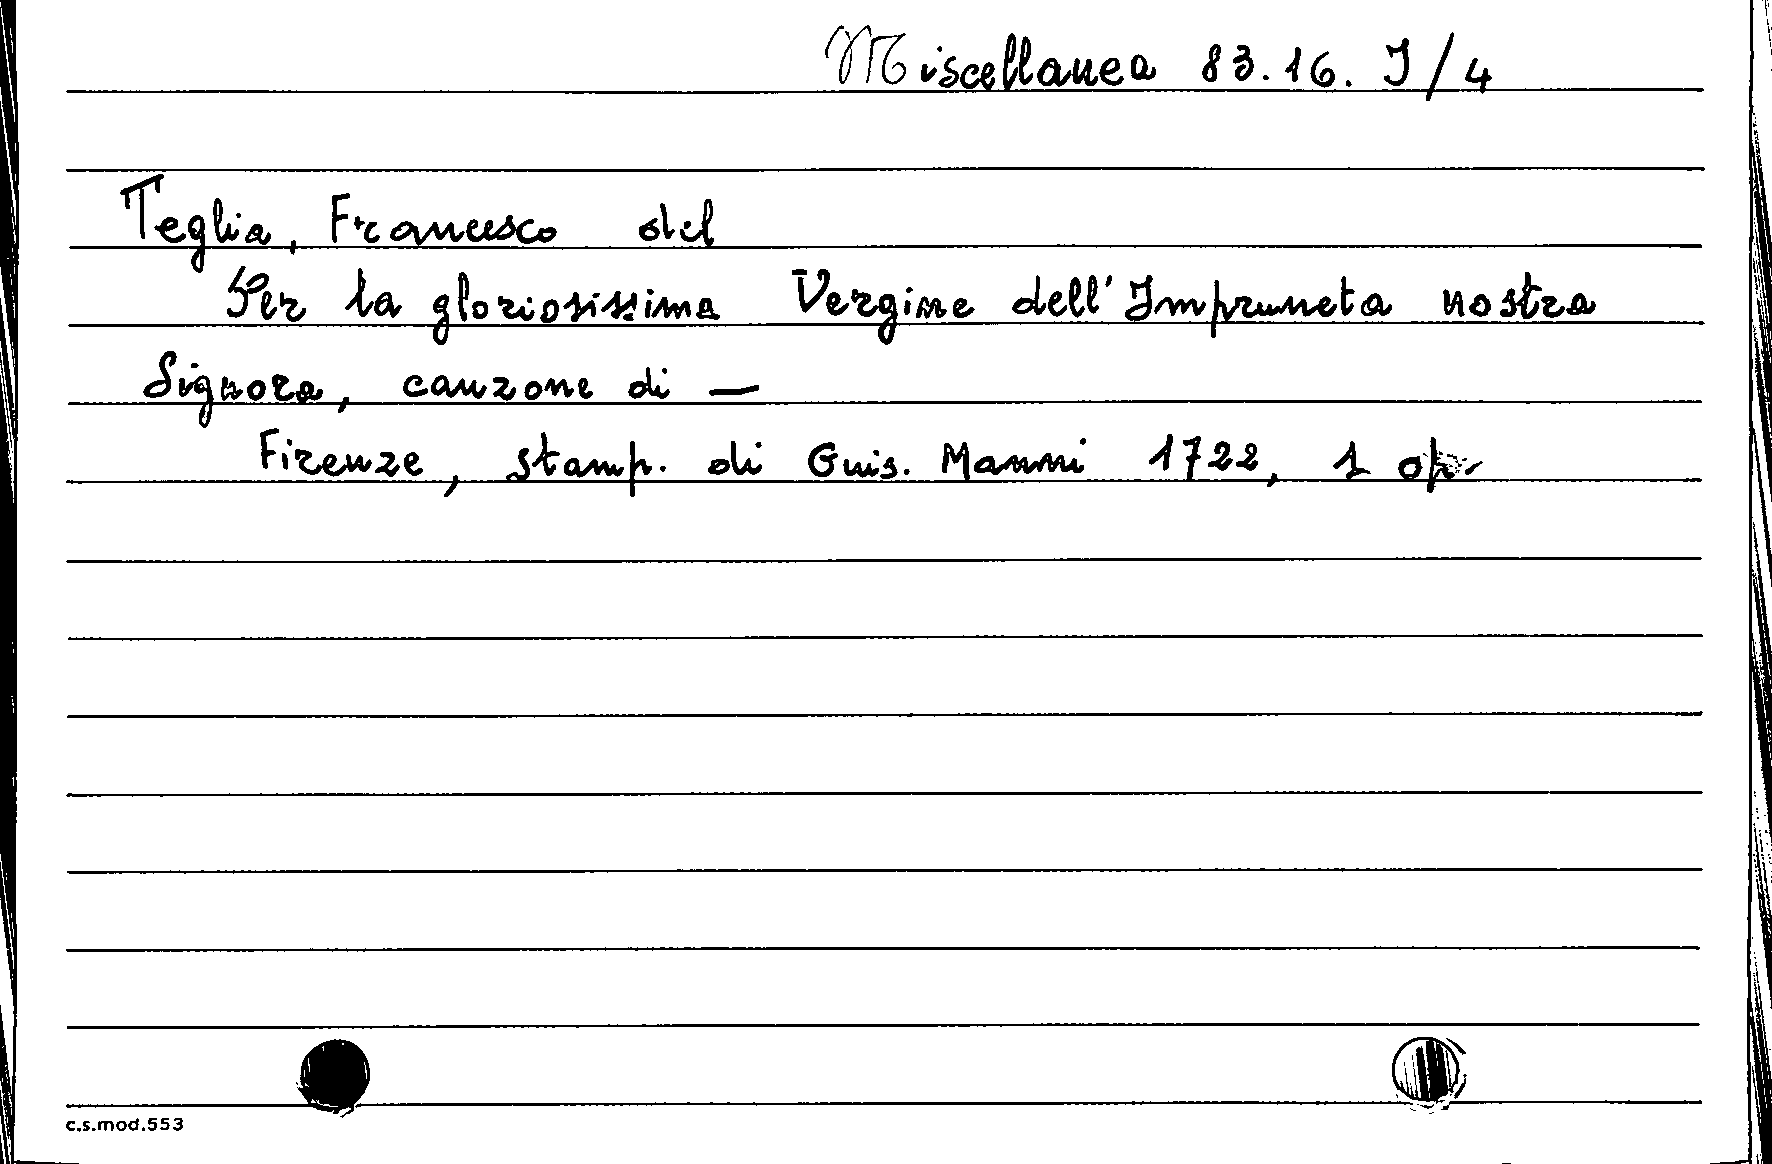 Miscellanea 83.16. I/4
Teglia, Francesco del
Per la gloriosissima Vergine dell'Impruneta nostra
Signora, canzone di —
Firenze, stamp. di Guis. Manni 1722, 1 op.
c.s.mod.553